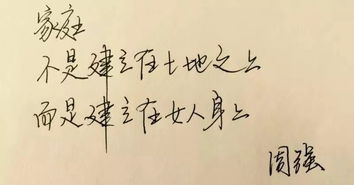 家庭
不是建立在土地之上
而是建立在女人身上
周强